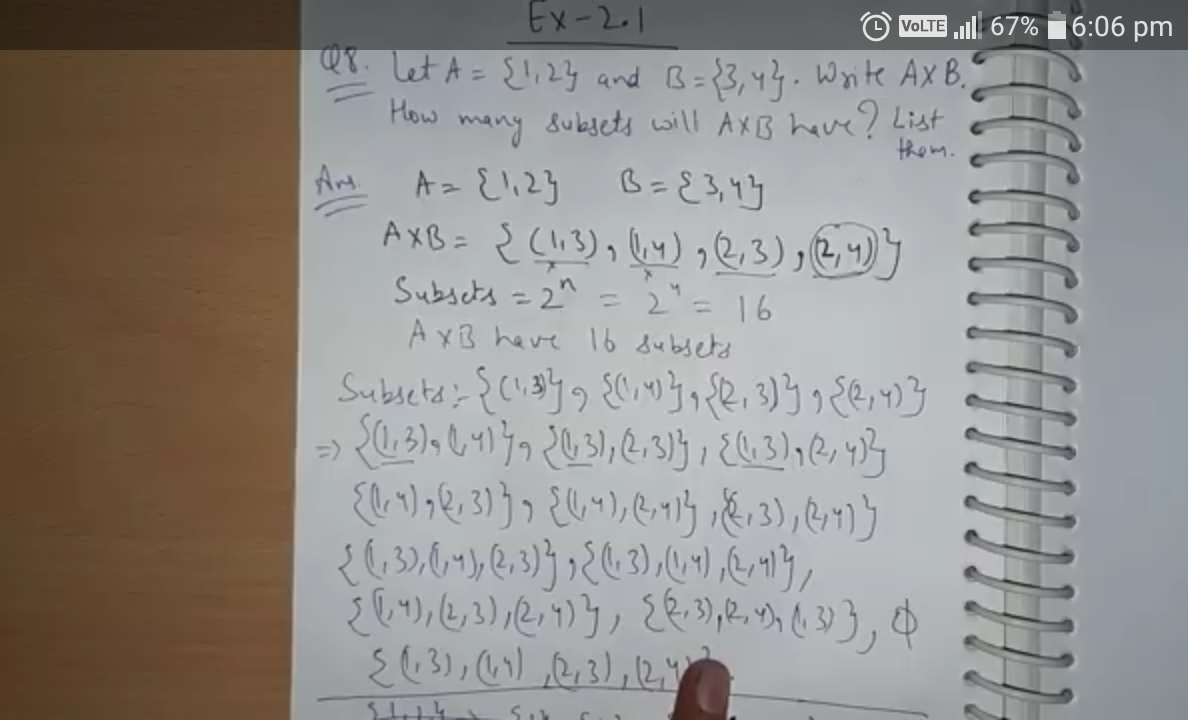 VoLTE 67% 6:06 pm
Ex-2.1
Q8. Let A = {1,2} and B = {3,4}. Write A×B.
How many subsets will A×B have? List them.
Ans. A = {1,2} B = {3,4}
A×B = {(1,3), (1,4), (2,3), (2,4)}
Subsets = 2ⁿ = 2⁴ = 16
A×B have 16 subsets
Subsets:- {(1,3)}, {(1,4)}, {(2,3)}, {(2,4)}
=> {(1,3), (1,4)}, {(1,3), (2,3)}, {(1,3), (2,4)}
{(1,4), (2,3)}, {(1,4), (2,4)}, {(2,3), (2,4)}
{(1,3), (1,4), (2,3)}, {(1,3), (1,4), (2,4)},
{(1,4), (2,3), (2,4)}, {(2,3), (2,4), (1,3)}, ϕ
{(1,3), (1,4), (2,3), (2,4)}